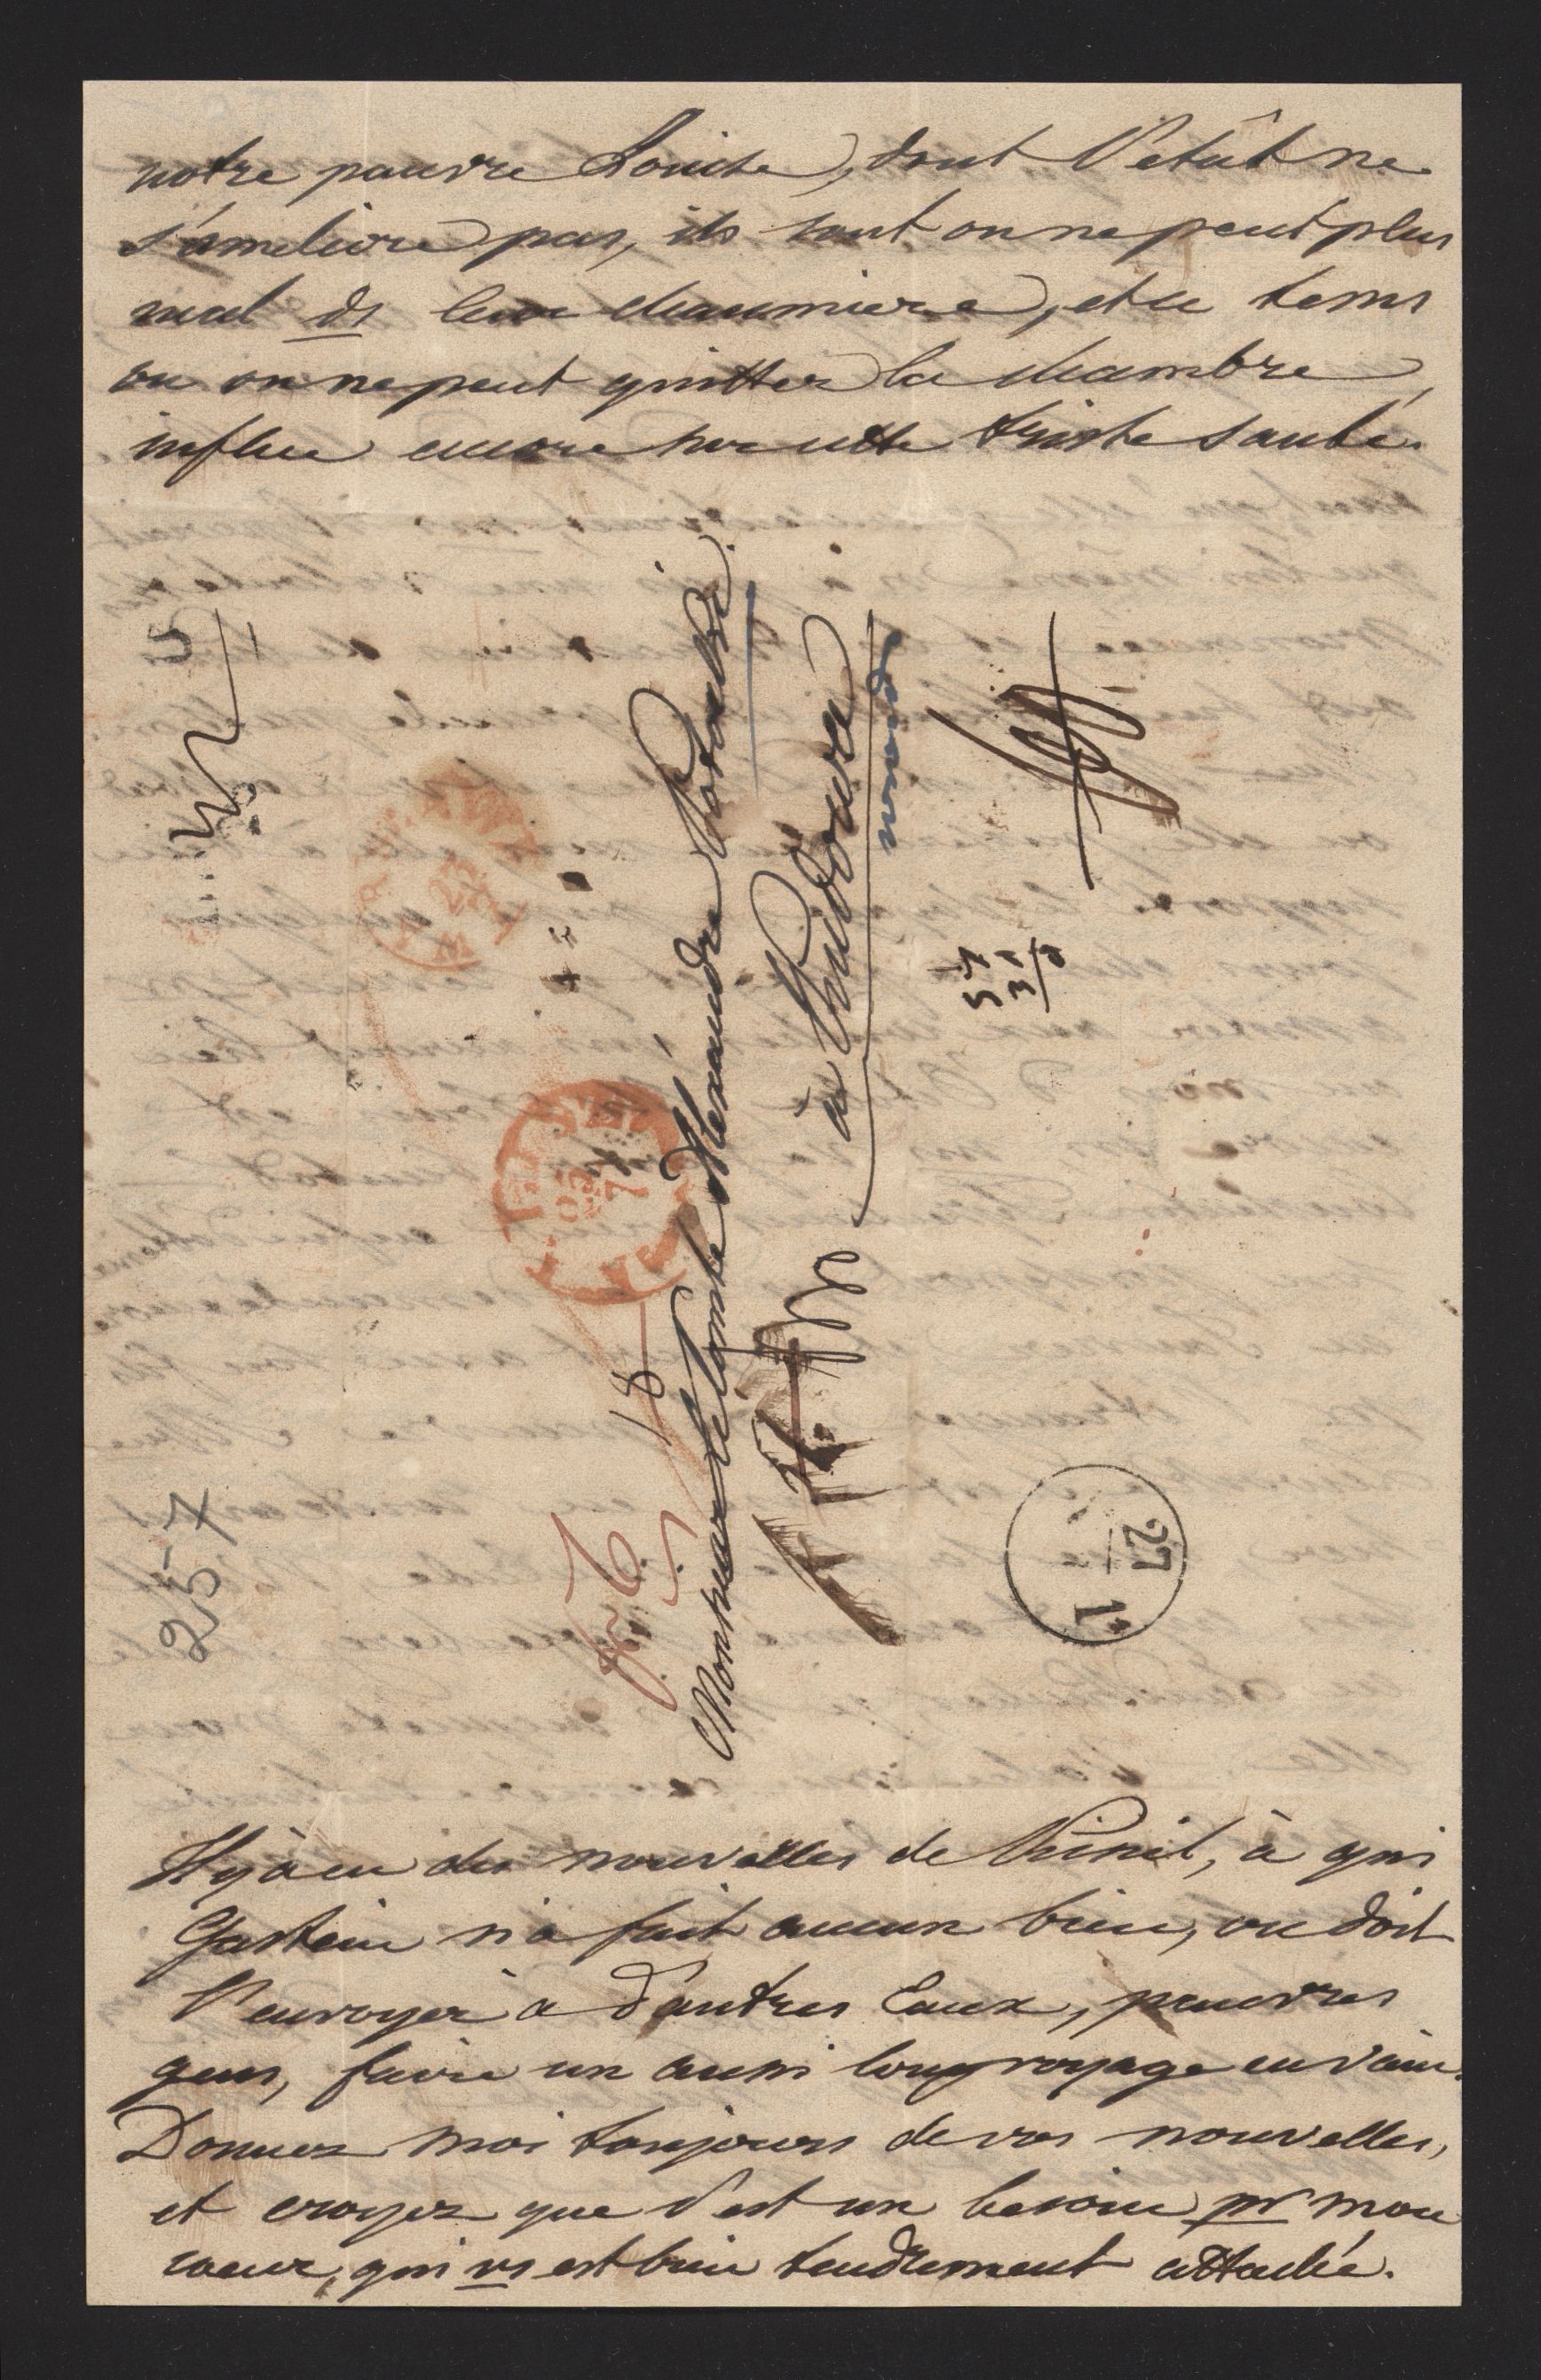 notre pauvre Louise, dont l'etât ne
s'ameliore pas, ils sont on ne peut plus
mal ds leur chaumiere, et ce tems
ou on ne peut quitter la chambre,
influe encore sur cette triste santé.
Monsieur le Comte Alexandre Potocki.
à
27
1
257
Il y à eu des nouvelles de
Gastein n'a fait aucun bien, on doit
l'envoyer à d'autres Eaux, pauvres
gens, faire un aussi long voyage en vain.
Donnez moi toujours de vos nouvelles,
et croyez que c'est un besoin pr mon
coeur, qui vs est bien tendrement attaché.